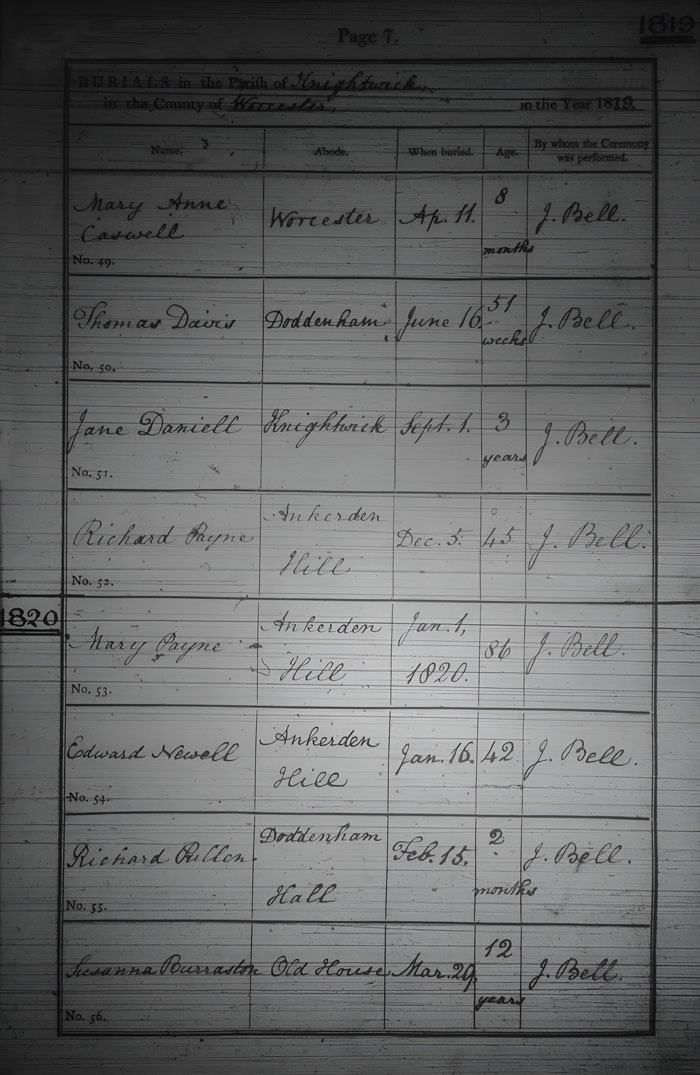 1819
Page 7.
BURIALS in the Parish of Knightwick
in the County of Worcester in the Year 1819.
Name. Abode. When buried. Age. By whom the Ceremony was performed.
Mary Anne Caswell Worcester Ap. 11. 8 months J. Bell.
No. 49.
Thomas Davis Doddenham June 16. 51 weeks J. Bell.
No. 50.
Jane Daniell Knightwick Sept. 1. 3 years J. Bell.
No. 51.
Richard Payne Ankerden Hill Dec. 5. 45 J. Bell.
No. 52.
1820
Mary Payne Ankerden Hill Jan. 1, 1820. 86 J. Bell.
No. 53.
Edward Newell Ankerden Hill Jan. 16. 42 J. Bell.
No. 54.
Richard Pullen Doddenham Hall Feb. 15. 2 months J. Bell.
No. 55.
Susanna Burraston Old House Mar. 29. 12 years J. Bell.
No. 56.